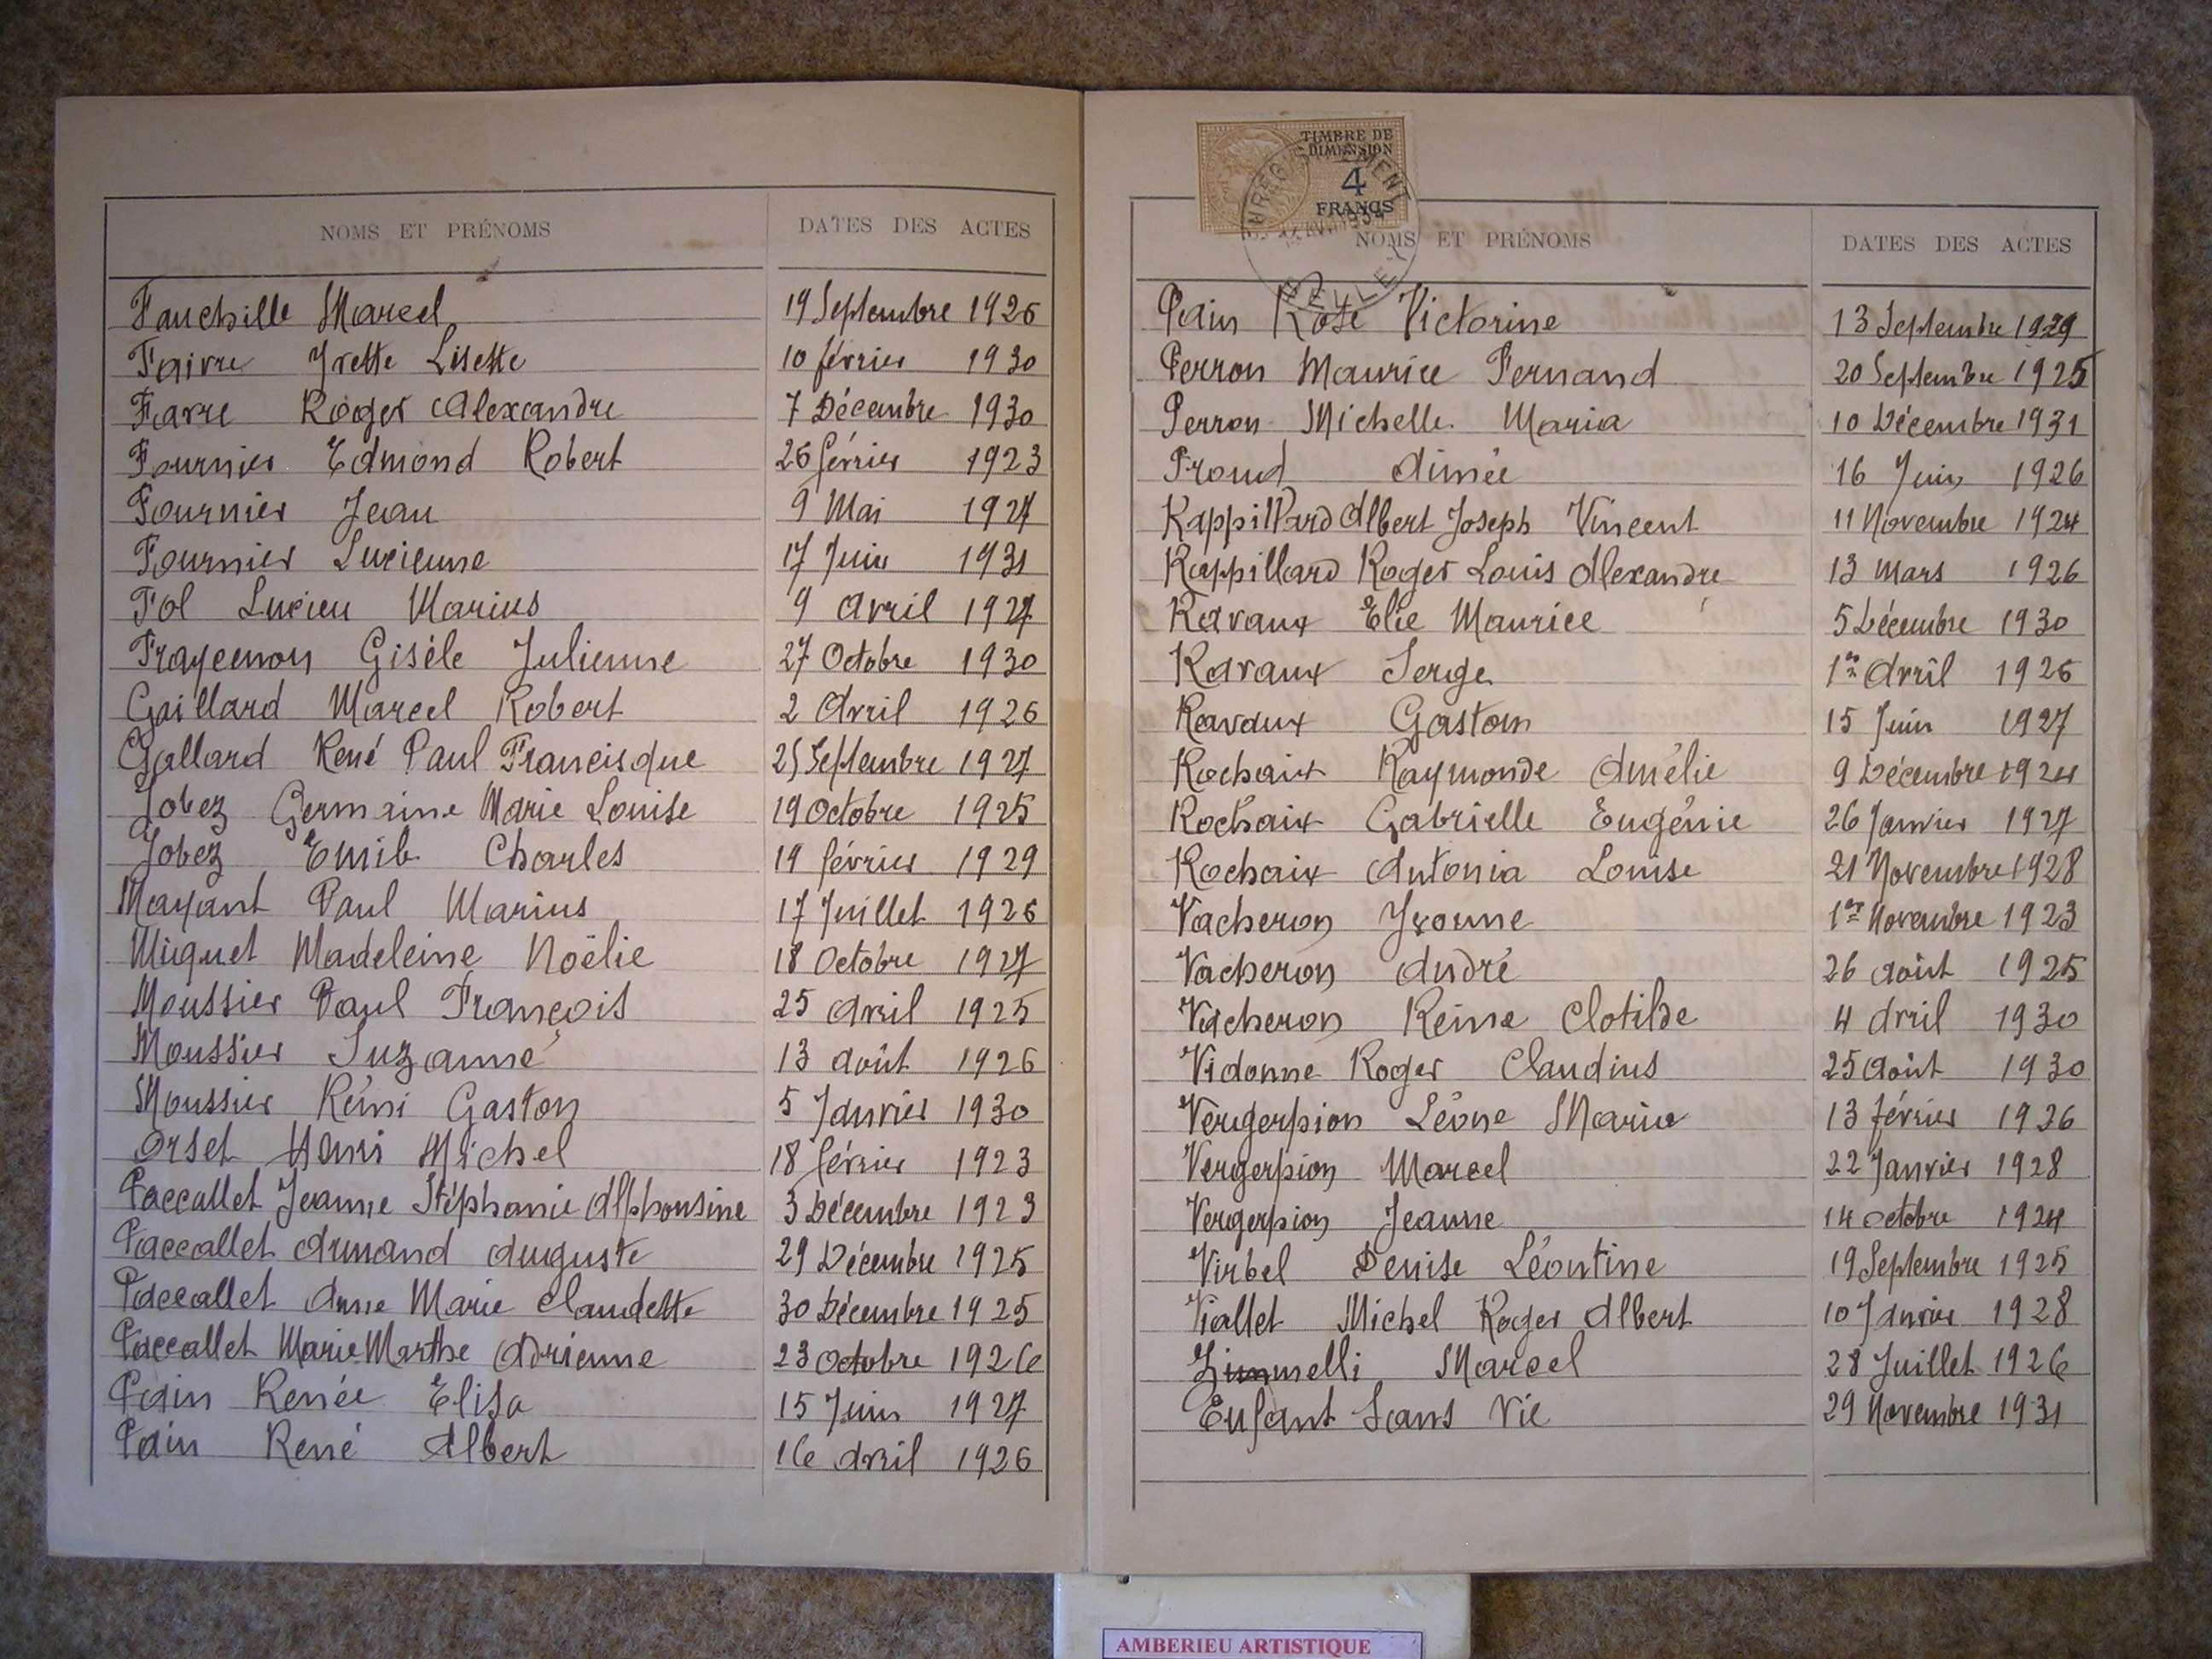 NOMS ET PRÉNOMS DATES DES ACTES
Fauchille Marcel 19 Septembre 1926
Faivre Yvette Lisette 10 février 1930
Favre Roger Alexandre 7 Décembre 1930
Fournier Edmond Robert 26 février 1923
Fournier Jean 9 Mai 1927
Fournier Lucienne 17 Juin 1931
Fol Lucien Marius 9 Avril 1927
Fraycenon Gisèle Julienne 27 Octobre 1930
Gaillard Marcel Robert 2 Avril 1926
Gallard René Paul Francisque 25 Septembre 1927
Jobez Germaine Marie Louise 19 Octobre 1925
Jobez Emile Charles 19 février 1929
Mayant Paul Marius 17 Juillet 1926
Miguet Madeleine Noëlie 18 Octobre 1927
Moussier Paul François 25 Avril 1925
Moussier Suzanne 13 août 1926
Moussier Rémi Gaston 5 Janvier 1930
Orset Henri Michel 18 février 1923
Paccallet Jeanne Stéphanie Alphonsine 3 Décembre 1923
Paccallet Armand Auguste 29 Décembre 1925
Paccallet Anne Marie Claudette 30 Décembre 1925
Paccallet Marie Marthe Adrienne 23 Octobre 1926
Pain Renée Elisa 15 Juin 1927
Pain René Albert 16 Avril 1926
TIMBRE DE
DIMENSION
4
FRANCS
NOMS ET PRÉNOMS DATES DES ACTES
Pain Rose Victorine 13 Septembre 1929
Perron Maurice Fernand 20 Septembre 1925
Perron Michelle Maria 10 Décembre 1931
Proud Aimée 16 Juin 1926
Rappillard Albert Joseph Vincent 11 Novembre 1924
Rappillard Roger Louis Alexandre 13 Mars 1926
Ravaux Elie Maurice 5 Décembre 1930
Ravaux Serge 1er Avril 1926
Ravaux Gaston 15 Juin 1927
Rochaix Raymonde Amélie 9 Décembre 1924
Rochaix Gabrielle Eugénie 26 Janvier 1927
Rochaix Antonia Louise 21 Novembre 1928
Vacheron Yvonne 1er Novembre 1923
Vacheron André 26 août 1925
Vacheron Reine Clotilde 4 Avril 1930
Vidonne Roger Claudius 25 Août 1930
Vengerpion Léone Marie 13 février 1926
Vergerpion Marcel 22 Janvier 1928
Vergerpion Jeanne 14 octobre 1924
Virbel Denise Léontine 19 Septembre 1925
Viallet Michel Roger Albert 10 Janvier 1928
Zimmelli Marcel 28 Juillet 1926
Enfant Sans Vie 29 Novembre 1931
AMBERIEU ARTISTIQUE